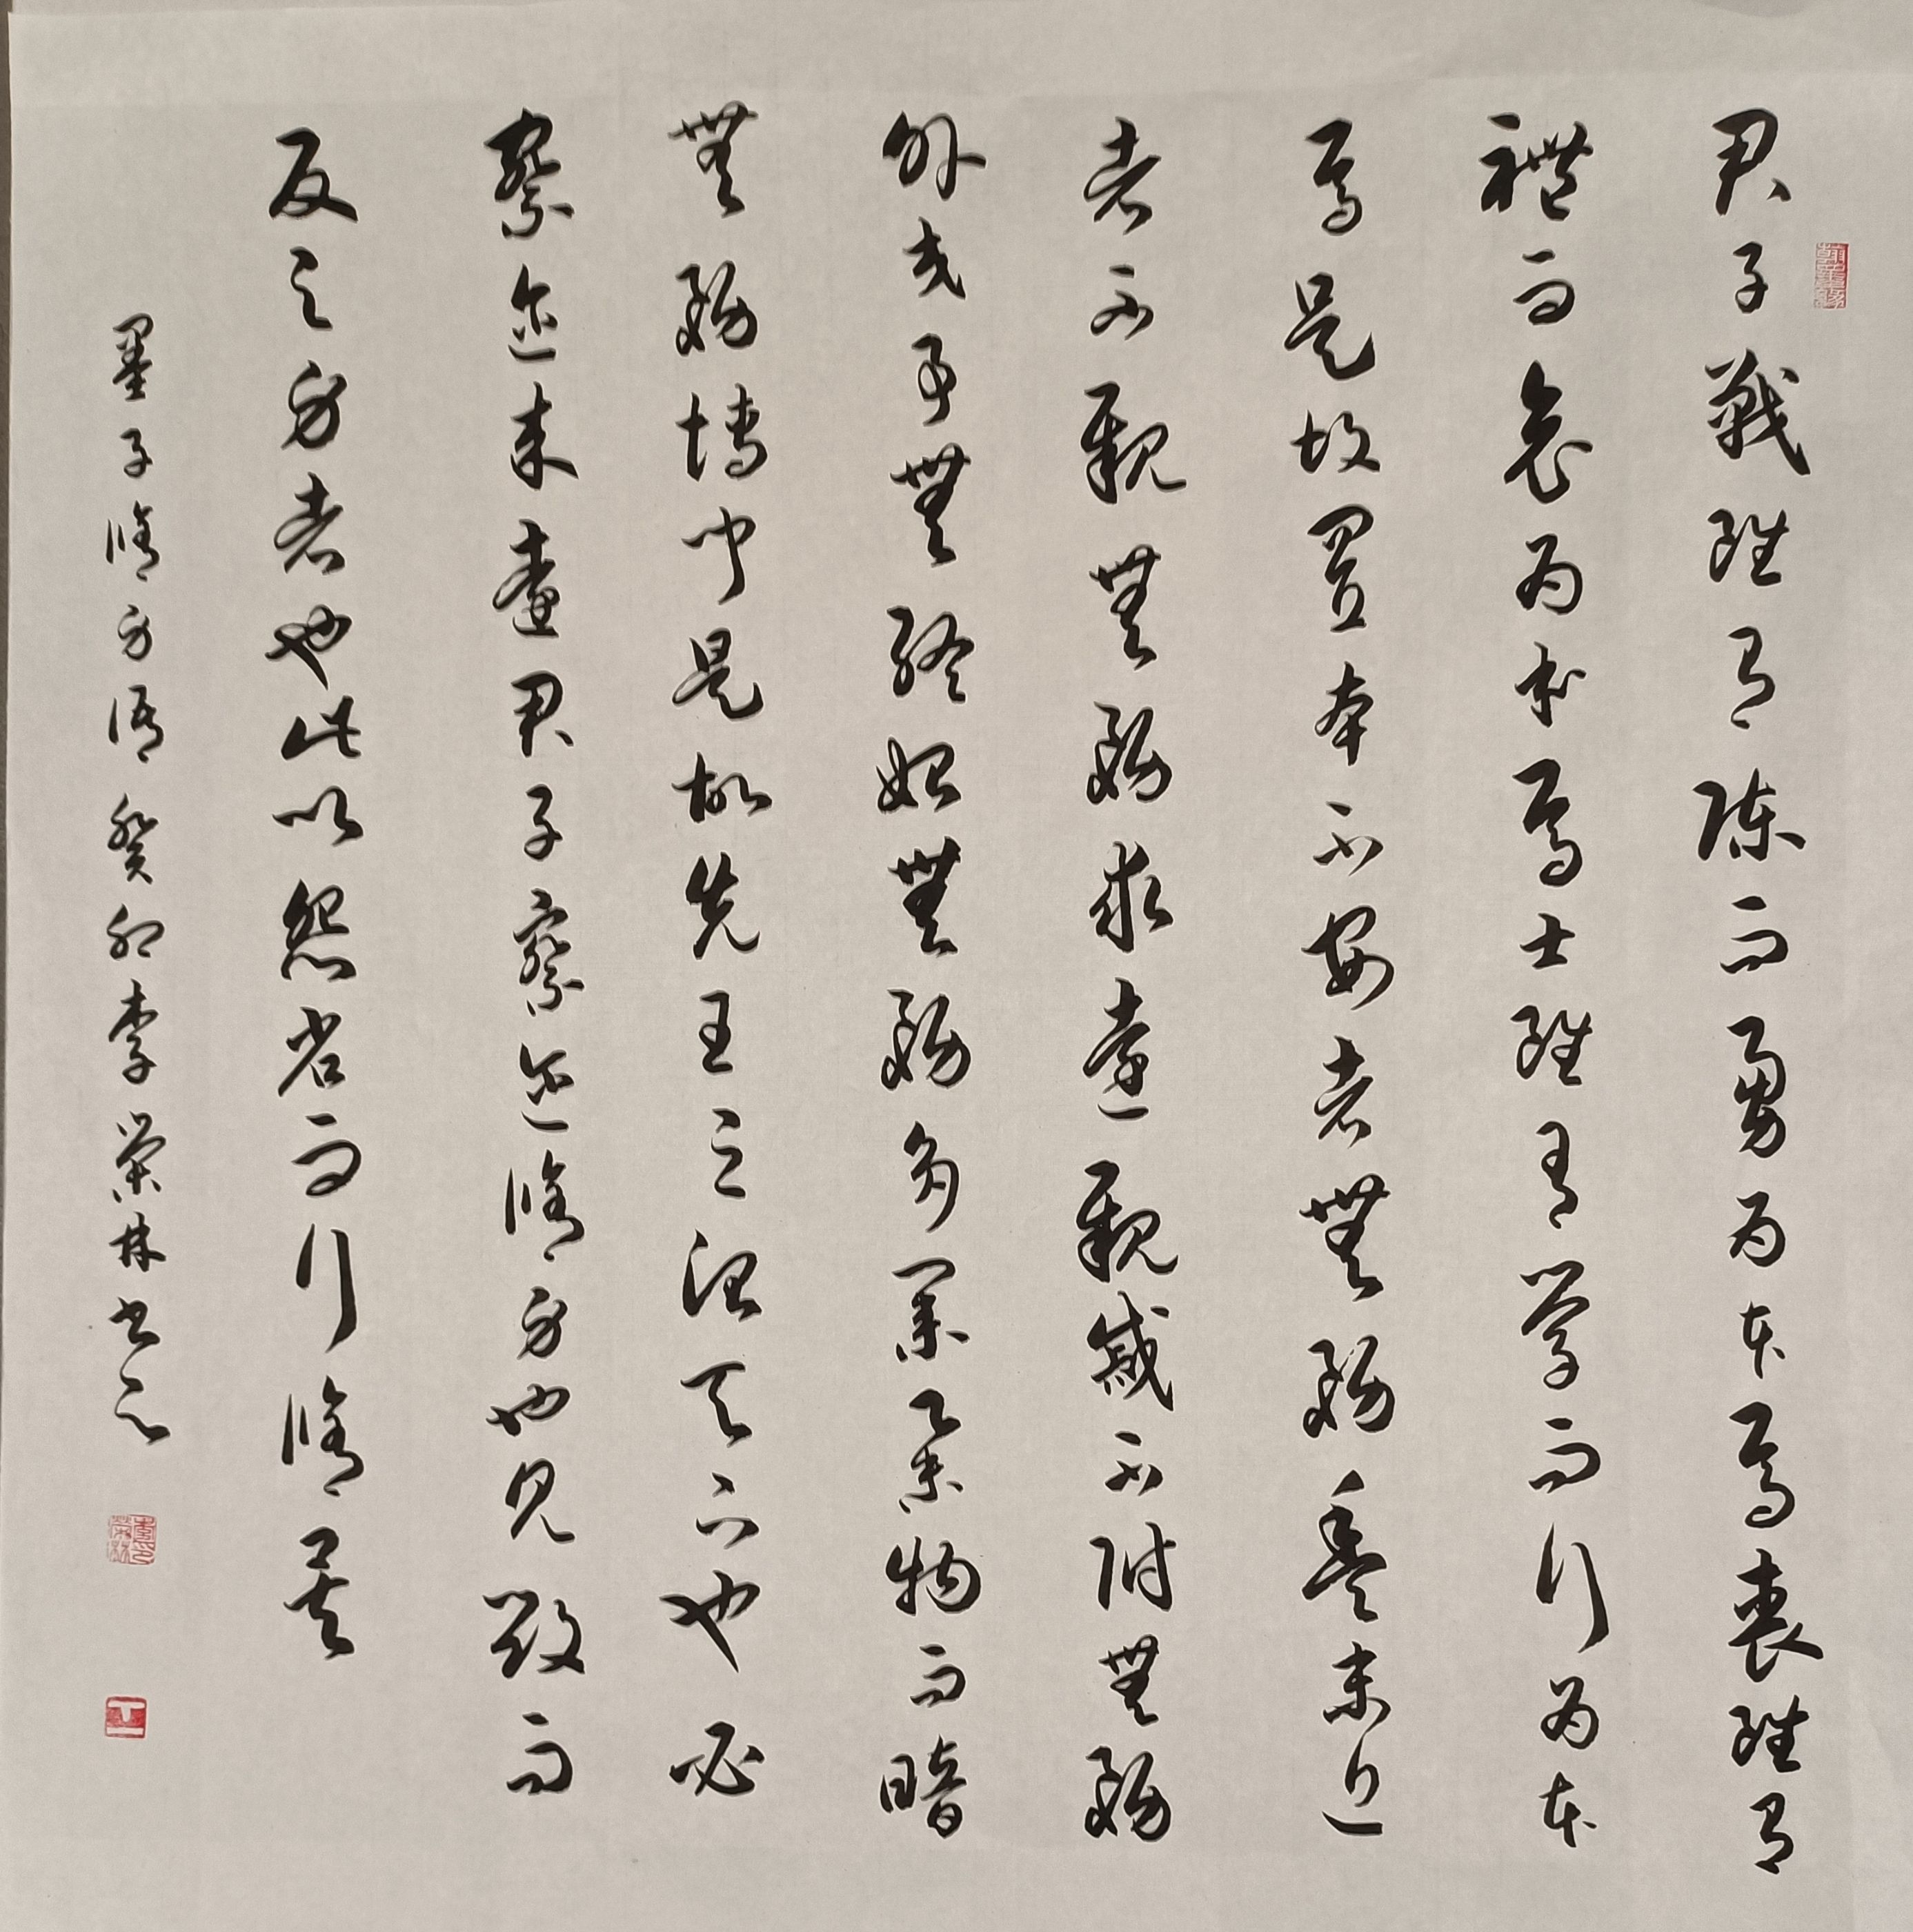 君子戰雖有陳而勇為本焉喪雖有
禮而哀為本焉士雖有學而行為本
焉是故置本不安者無務豐末近
者不親無務求遠親戚不附無務
外交事無終始無務多業舉物而暗
無務博聞是故先王之治天下也必
察邇來遠君子察邇脩身也見毀而
反之身者也此以怨省而行脩矣
墨子脩身語癸卯李榮林書之